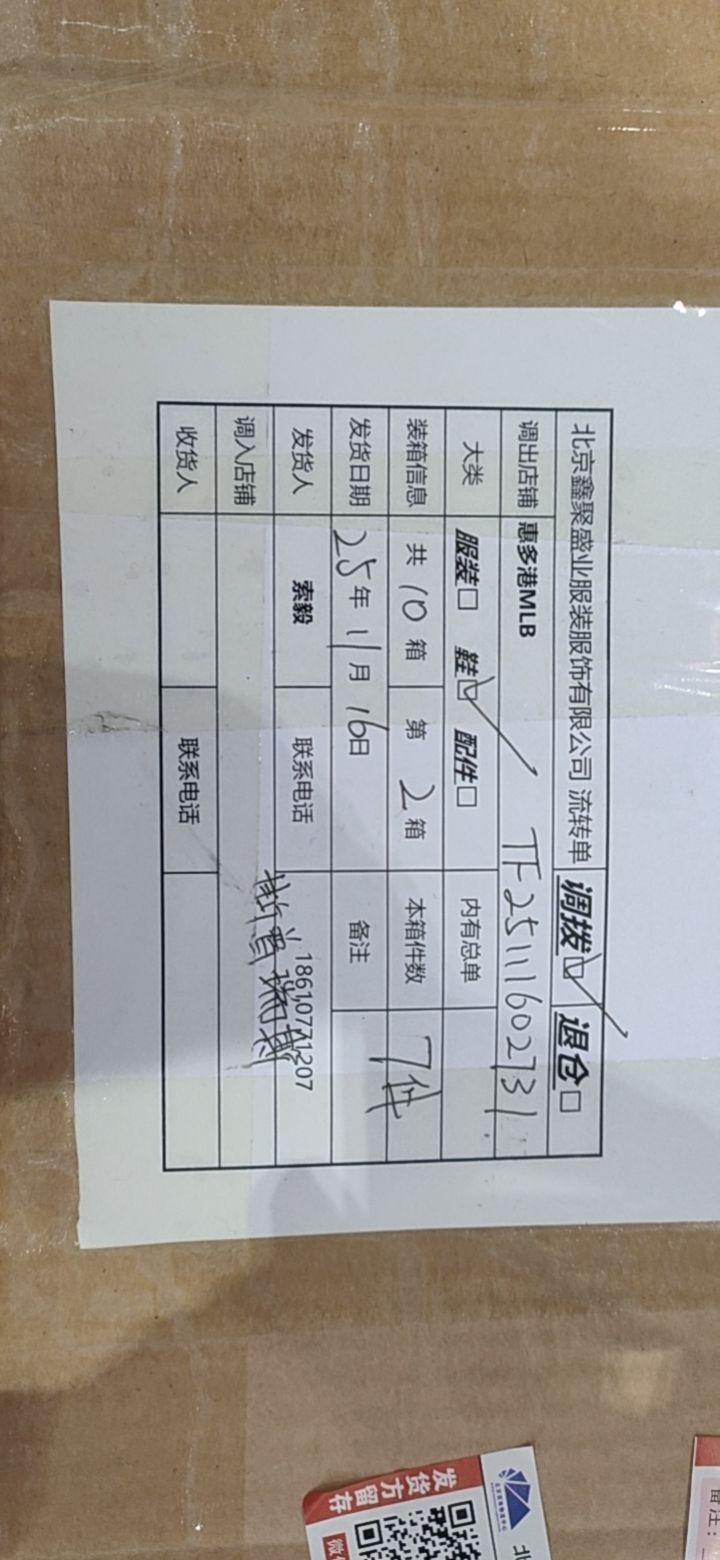 北京鑫聚盛业服装服饰有限公司 流转单 调拨☑ 退仓□
调出店铺 惠多港MLB TF25111602731
大类 服装□ 鞋☑ 配件□ 内有总单
装箱信息 共 10 箱 第 2 箱 本箱件数 7件
发货日期 25 年 11 月 16 日 备注
发货人 索毅 联系电话 18610771207
调入店铺
收货人 联系电话
发货方留存
备注：